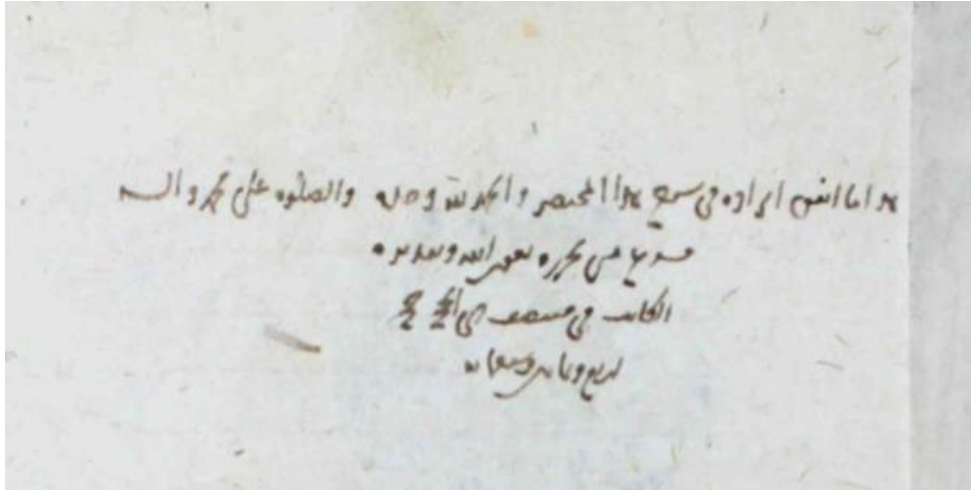 هذا ما اتفق ايراده في شرح هذا المختصر والحمد لله وحده والصلوة على محمد واله
فرغ من تحريره بعون الله
الكاتب في منتصف ذي الحجة
اربع وثمانين وستمائة